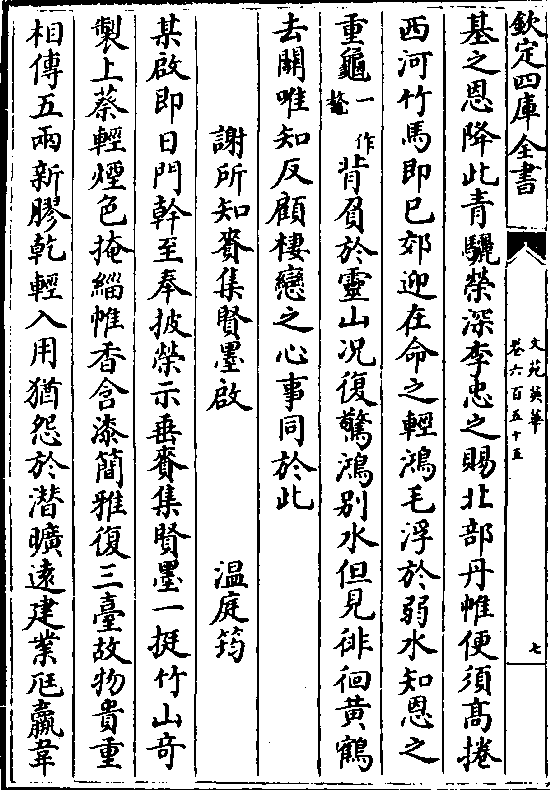 欽定四庫全書
文苑英華
卷六百五十五
七
基之恩降此青驪榮深李忠之賜北部丹帷便須髙捲
西河竹馬即已郊迎在命之輕鴻毛浮於弱水知恩之
重龜一作鼇背負於靈山况復驚鴻别水但見徘徊黄鶴
去關唯知反顧棲戀之心事同於此
謝所知賚集賢墨啟 温庭筠
某啟即日門幹至奉披榮示垂賚集賢墨一挺竹山奇
製上蔡輕煙色掩緇帷香含漆簡雅復三臺故物貴重
相傳五兩新膠乾輕入用猶怨於潛曠逺建業尫羸韋